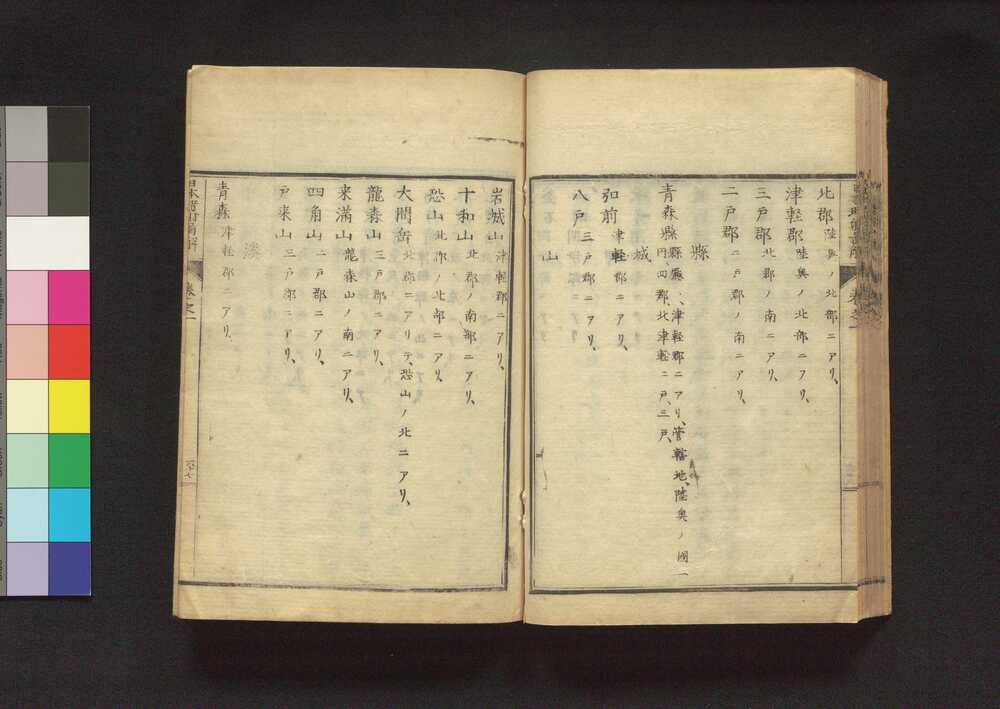 北郡 陸奥ノ北部ニアリ、
津軽郡 陸奥ノ北部ニアリ、
三戸郡 北郡ノ南ニアリ、
二戸郡 三戸郡ノ南ニアリ、
縣
青森縣 縣廳ハ、津軽郡ニアリ、管轄地、陸奥ノ國一
円、四郡、北津軽二戸、三戸、
城
弘前 津軽郡ニアリ、
八戸 三戸郡ニアリ、
山
岩城山 津軽郡ニアリ、
十和山 北郡ノ南部ニアリ
恐山 北郡ノ北部ニアリ
大間岳 北郡ニアリテ、恐山ノ北ニアリ、
龍森山 三戸郡ニアリ、
来満山 龍森山ノ南ニアリ、
四角山 二戸郡ニアリ、
戸来山 三戸郡ニアリ、
湊
青森 津軽郡ニアリ、
巻之一